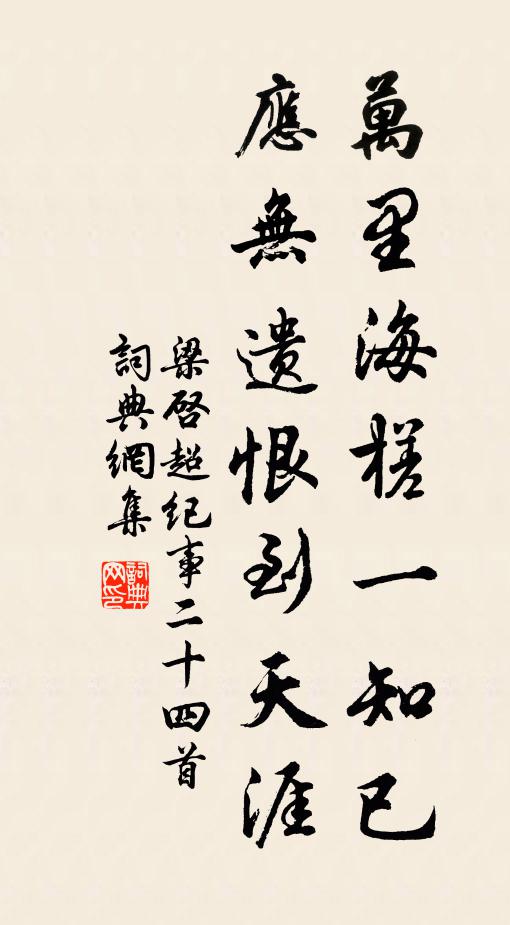 萬里海槎一知己
應無遺恨到天涯
梁啓超紀事二十四首
詞典網集
詞典网印